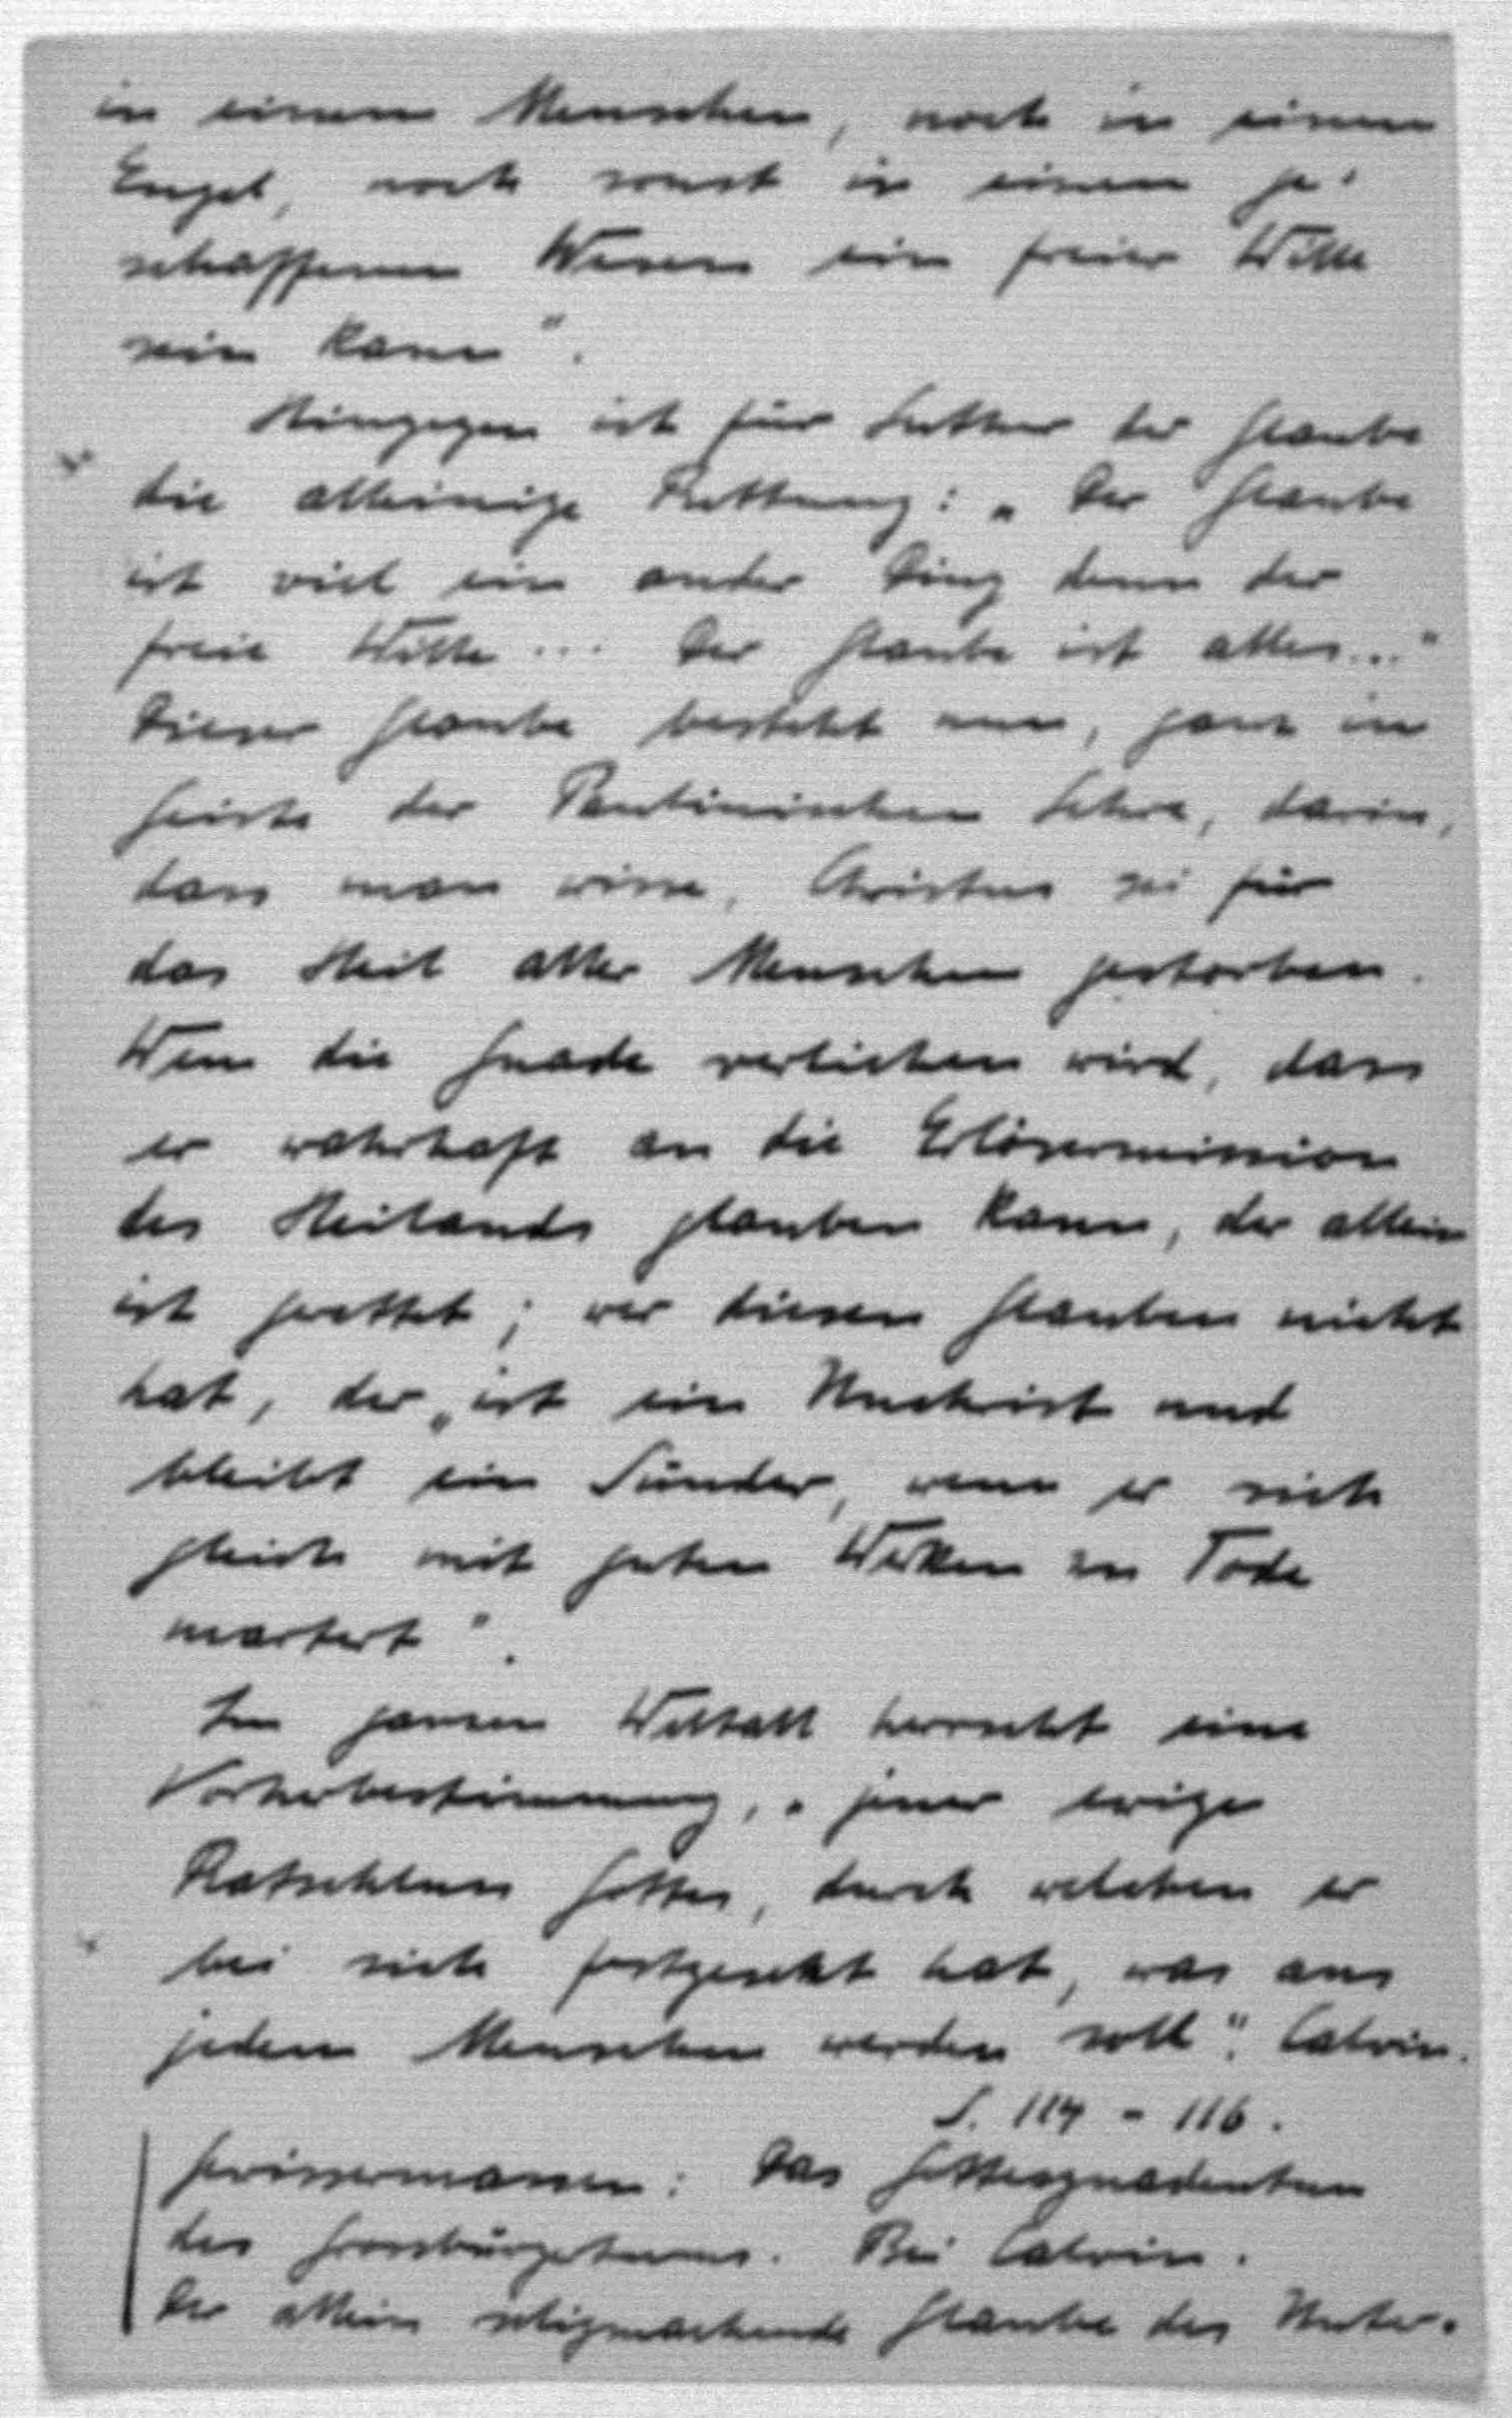 in einem Menschen, noch in einem
Engel, noch sonst in einem ge-
schaffenen Wesen ein freier Wille
sein kann".
Hingegen ist für Luther der Glaube
die alleinige Rettung: „Der Glaube
ist viel ein ander Ding denn der
freie Wille... Der Glaube ist alles..."
Dieser Glaube besteht nun, ganz im
Geiste der Paulinischen Lehre, darin,
dass man wisse, Christus sei für
das Heil aller Menschen gestorben.
Wem die Gnade verliehen wird, dass
er wahrhaft an die Erlösermission
des Heilands glauben kann, der allein
ist gerettet; wer diesen Glauben nicht
hat, der „ist ein Unchrist und
bleibt ein Sünder, wenn er sich
gleich mit guten Werken zu Tode
martert".
Im ganzen Weltall herrscht eine
Vorherbestimmung, „jener ewige
Ratschluss Gottes, durch welchen er
bei sich festgesetzt hat, was aus
jedem Menschen werden soll". Calvin.
S. 114 - 116.
Gewissermassen: Das Gottesgnadentum
des Grossbürgertums. Bei Calvin.
Der allein seligmachende Glaube des Unter-